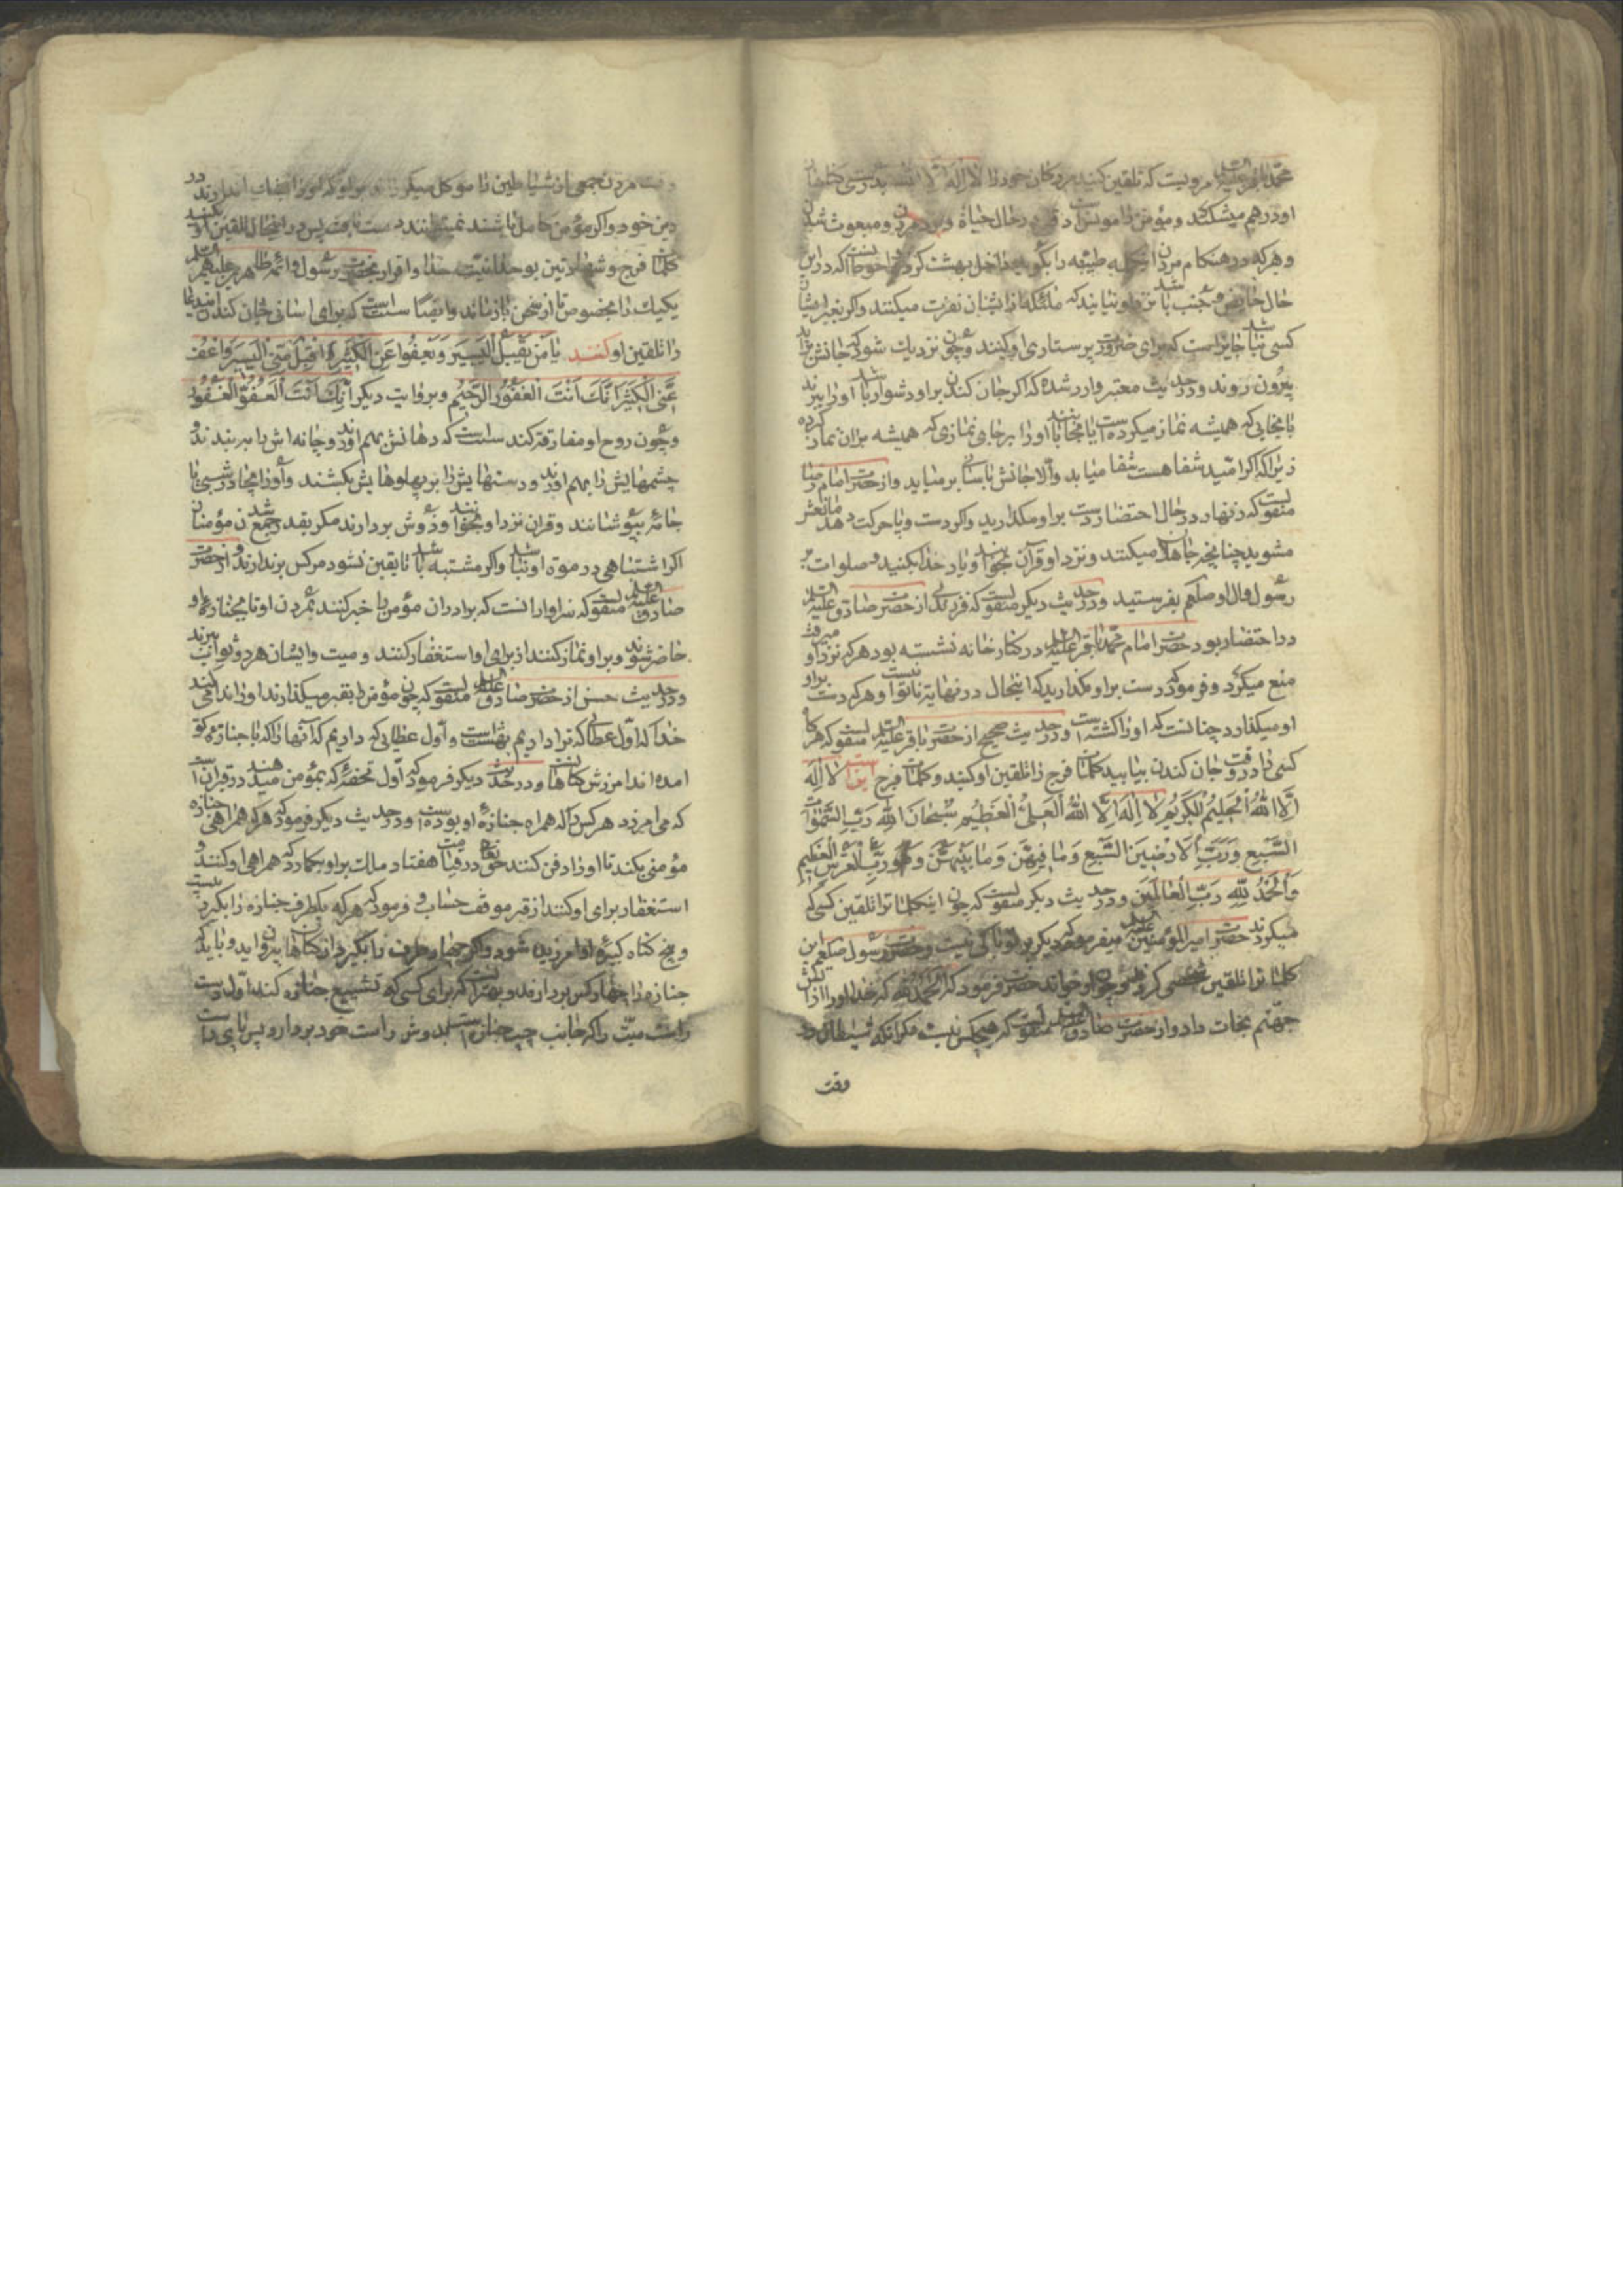 محمد باقر علیه السلم مرویست که تلقین کنید مردکان خود را لا اله الا الله
او درهم میشکند و مؤمن را مونس است در حال حیاة و مردن و مبعوث شدن
و هرکه در هنکام مردن این کلمه طیبه را بکوید داخل بهشت کردد و احوط آنست که در این
حال حایض و جنب نزد او نیایند که ملئکه از ایشان نفرت میکنند و اکر بغیر ایشان
کسی نباشد جایز است که برای ضرورت پرستاری او کنند و چون نزدیک شود که جانش براید
بیرون روند و در حدیث معتبر وارد شده که اکر جان کندن بر او دشوار باشد او را ببرند
بجایی که همیشه نماز میکرده است یا بجا او را بر جای نمازی که همیشه بران نماز کرده
زیرا که اکر امید شفا هست شفا میابد و الا جانش باسانی بر میاید و از حضرت امام رضا
منقولست که زنهار در حال احتضار دست بر او مکذارید و اکر دست و پا حرکت دهد مانعش
مشوید چنانچه جاهلان میکنند و نزد او قرآن بخوانید و یاد خدا بکنید و صلوات بر
رسول و ال او صلعم بفرستید و در حدیث دیکر منقولست که فرزندی از حضرت صادق علیه السلم
در احتضار بود حضرت امام محمد باقر علیه السلم در کنار خانه نشسته بود هرکه نزد او میرفت
منع میکرد و فرمود که دست بر او مکذارید که اینحال در نهایة ناتوانیست و هرکه دست بر او
او میکذارد چنانست که او را کشته است و در حدیث صحیح از حضرت باقر علیه السلم منقولست که هرکاه
کسی را در وقت جان کندن بیابید کلمات فرج را تلقین او کنید و کلمات فرج اینست لا اله
الا الله الحلیم الکریم لا اله الا الله العلی العظیم سبحان الله رب السموات
السبع و رب الارضین السبع و ما فیهن و ما بینهن و هو رب العرش العظیم
و الحمد لله رب العالمین و در حدیث دیکر منقولست که چون اینکلمات را تلقین کسی که
میکردند حضرت امیر المؤمنین علیه السلم میفرمود که دیکر بر تو باکی نیست و حضرت رسول صلعم این
کلمات را تلقین شخصی کرد و چون او خواند حضرت فرمود که الحمد لله که خدا او را از آتش
جهنم نجات داد و از حضرت صادق علیه السلم منقولست که هیچکس نیست مکر انکه شیطان در
وقت
وقت مردن جمعی از شیاطین را موکل میکرداند بر او که او را بشک اندازند در
دین خود و اکر مؤمن کامل باشند نمیتوانند دست یافت پس در اینحال تلقین او بکنند
کلمات فرج و شهادتین بوحدانیت خدا و اقرار بحضرت رسول و ائمه طاهرین علیهم السلم
یکیک را بخصوص تا از سخن باز ماند و ایضا سنت است که برای اسانی جان کندن این دعا
را تلقین او کنند یا من یقبل الیسیر و یعفوا عن الکثیر اقبل منی الیسیر و اعف
عنی الکثیر انک انت الغفور الرحیم و بروایت دیکر انک انت العفو الغفور
و چون روح او مفارقت کند سنت است که دهانش بهم اورند و چانه اش را ببندند و
چشمهایش را بهم اورند و دستهایش را بر پهلوهایش بکشند و او را بجامه بپوشانند
جامه بپوشانند و قران نزد او بخوانند و زودش بردارند مکر بقدر جمع شدن مؤمنان
اکر اشتباهی در موة او نباشد و اکر مشتبه باشد تا یقین نشود مرکش برندارند و از حضرت
صادق علیه السلم منقولست که سزاوار انست که برادران مؤمن را خبر کنند بمردن او تا بجنازه او
حاضر شوند و بر او نماز کنند از برای او استغفار کنند و میت و ایشان هردو ثواب ببرند
و در حدیث حسن از حضرت صادق علیه السلم منقولست که چون مؤمن را بقبر میکذارند او را ندا می کنند
خدا که اول عطای که ترا دادیم بهشت است و اول عطایی که دادیم که آنها را که با جنازه تو
امده اند امرزش کناهانست و در حدیث دیکر فرمود که اول تحفه که بمؤمن میدهند در قبر ان است
که می امرزد هرکس را که همراه جنازه او بوده است و در حدیث دیکر فرمود که هرکه همراهی جنازه
مؤمنی بکند تا او را دفن کنند حق تعالی در قیامت هفتاد ملک بر او بکمارد که همراهی او کنند و
استغفار برای او کنند از قبر تا موقف حساب و فرمود که هرکه یکطرف جنازه را بکیرد بیست
و پنج کناه کبیره او امرزیده شود و اکر چهار طرف را بکیرد از کناهان بیرون اید و باید که
جنازه را چهار کس بردارند و بهتر آنست که برای کسی که تشییع جنازه کند اول دست
راست میت را که جانب چپ جنازه است بدوش راست خود بردارد و پس پای راست